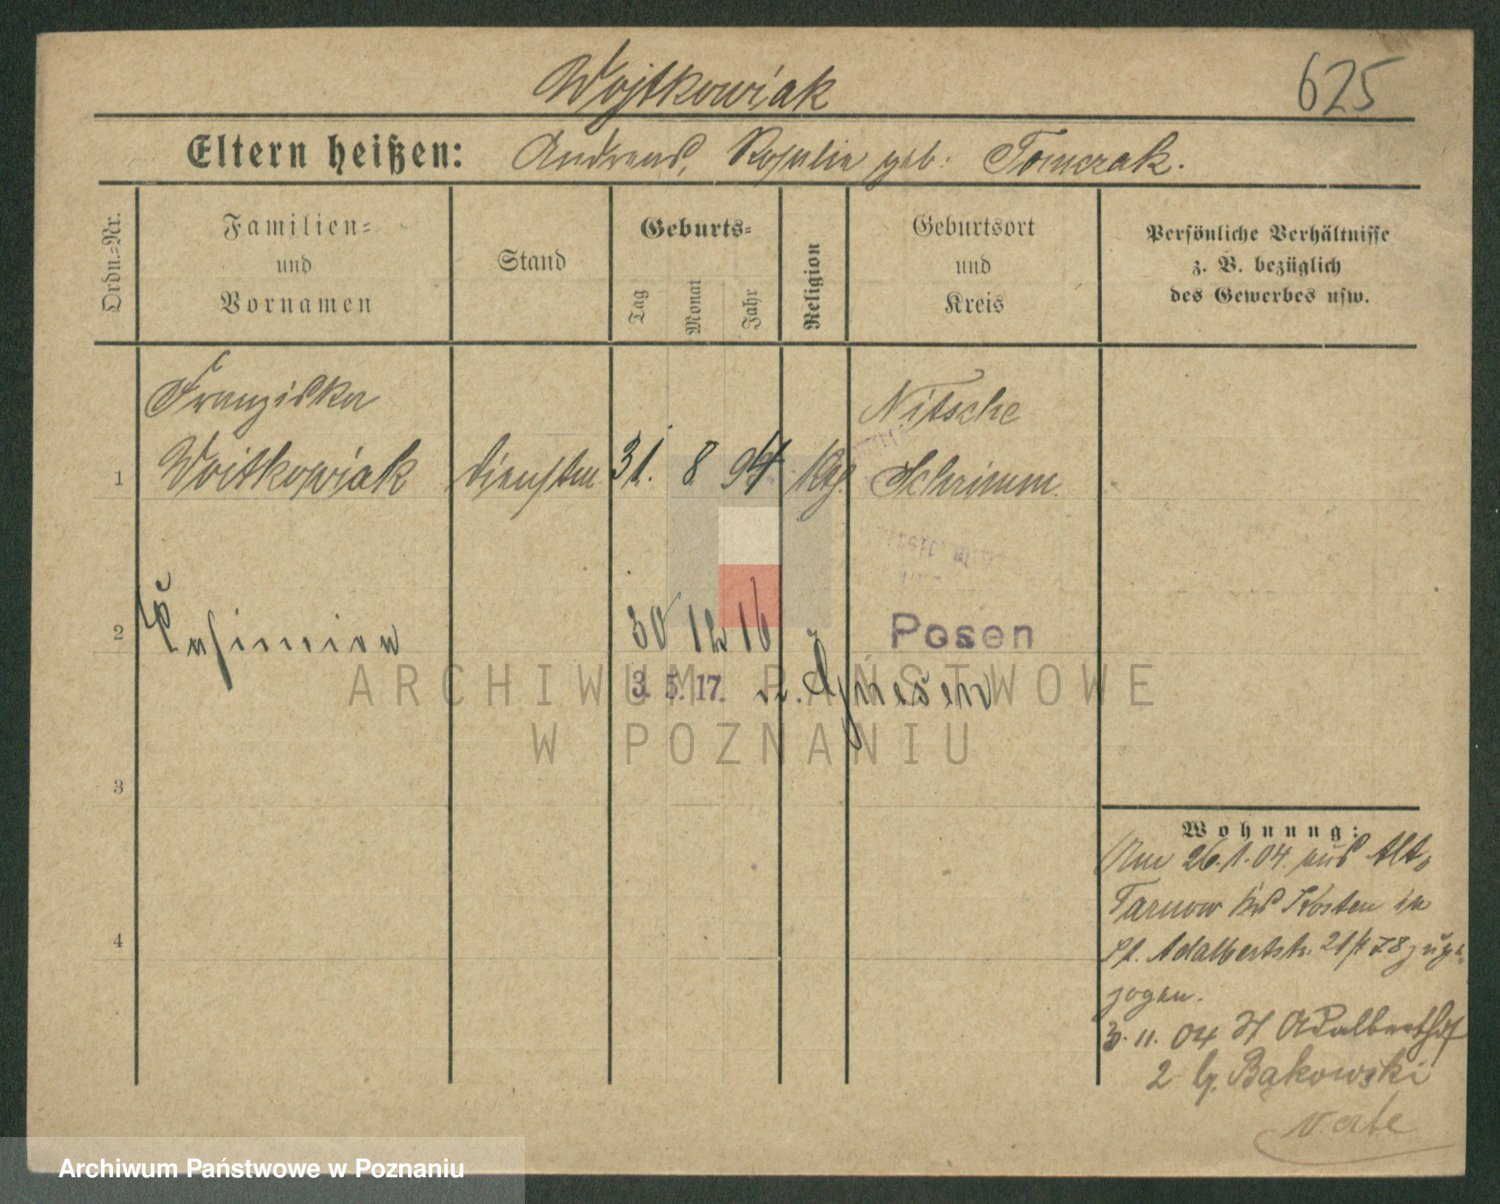 Wojtkowiak
625
Eltern heißen: Andreas, Rosalie geb: Tomczak.
Ordn.=Nr.
Familien=
und
Vornamen
Stand
Geburts=
Tag
Monat
Jahr
Religion
Geburtsort
und
Kreis
Persönliche Verhältnisse
z. B. bezüglich
des Gewerbes usw.
Franziska
Nitsche
1 Woitkowiak 31. 8 94 Schrimm.
2 Casimira 30 12 16 Posen
3. 5. 17. n. Gnesen
3
4
Wohnung:
Am 26.1.04. aus Alt=
Tarnow Krs Kosten in
St. Adalbertstr.
zogen.
3. 11. 04 St Adalberthof
2 b. Bąkowski
ARCHIWUM PAŃSTWOWE
W POZNANIU
Archiwum Państwowe w Poznaniu